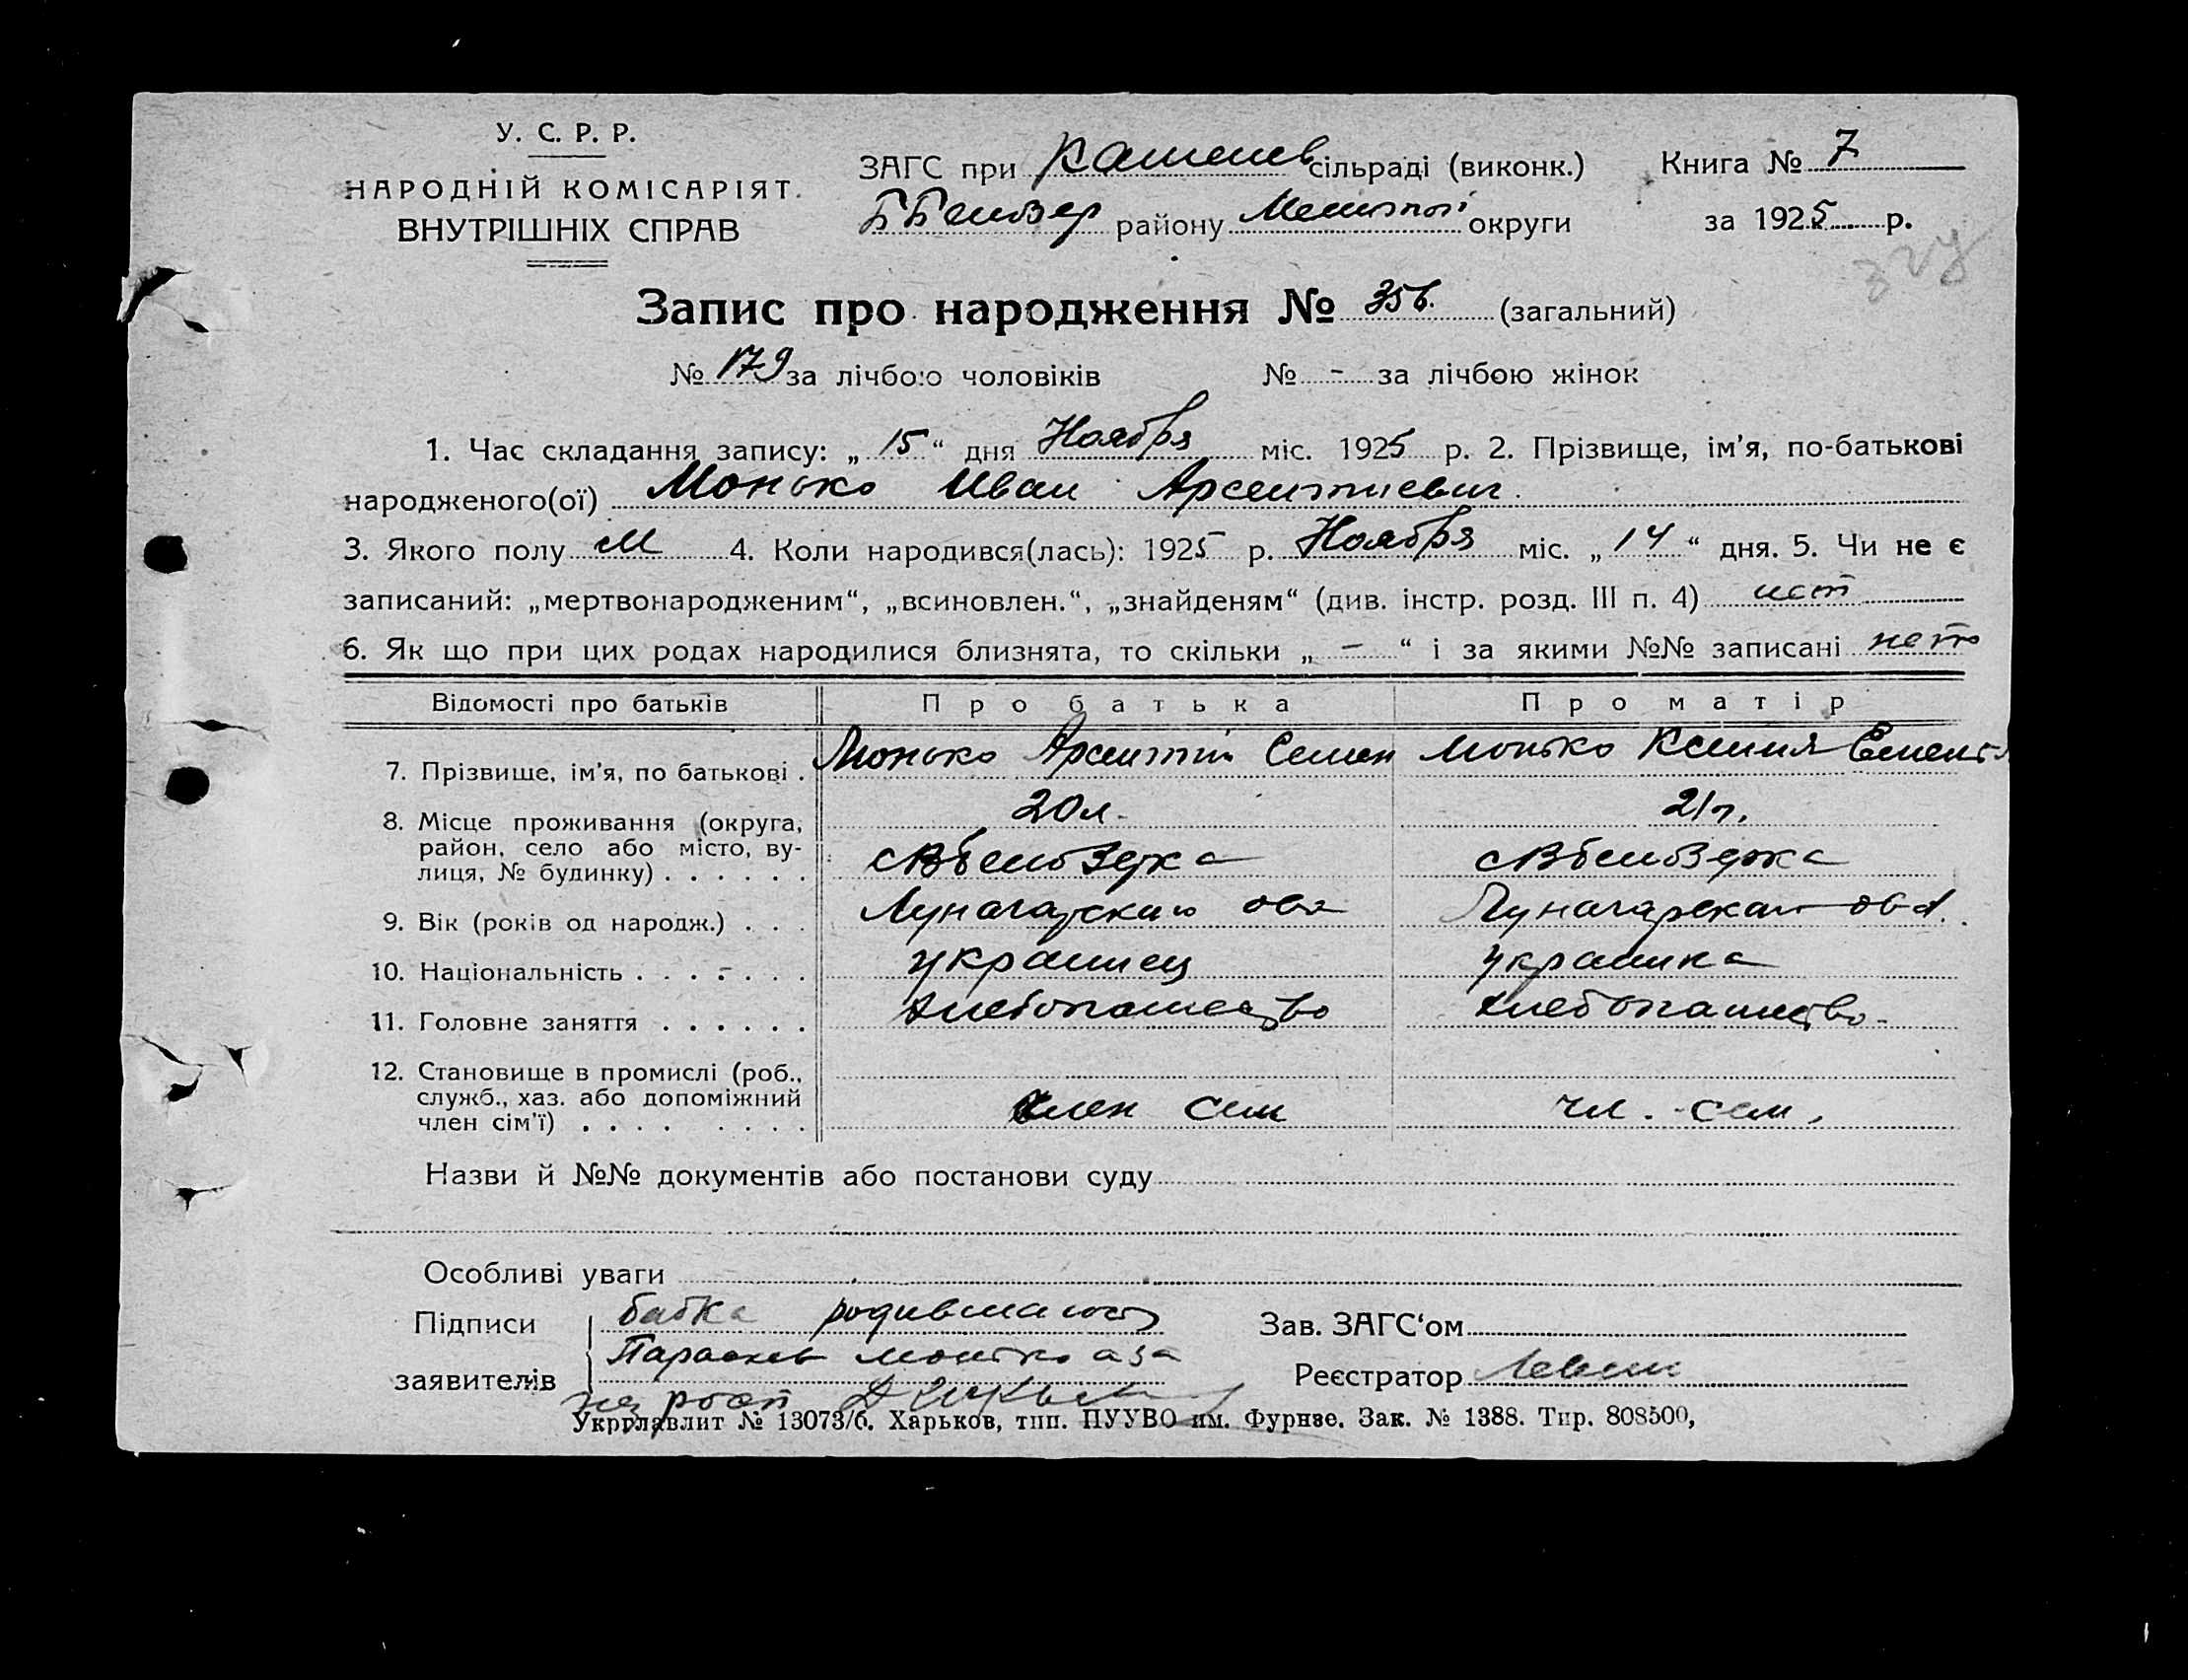 У. С. Р. Р.
НАРОДНІЙ КОМІСАРІЯТ
ВНУТРІШНІХ СПРАВ
ЗАГС при сільраді (виконк.)
району округи
Книга № 7
за 1925 р.
Запис про народження № 356. (загальний)
№ 179 за лічбою чоловіків № - за лічбою жінок
1. Час складання запису: „ 15 “ дня Ноября міс. 1925 р. 2. Прізвище, ім’я, по-батькові
народженого(ої) Монько Иван Арсентиевич.
3. Якого полу м 4. Коли народився(лась): 1925 р. Ноября міс. „ 14 “ дня. 5. Чи не є
записаний: „мертвонародженим“, „всиновлен.“, „знайденям“ (див. інстр. розд. III п. 4) нет
6. Як що при цих родах народилися близнята, то скільки „ — “ і за якими №№ записані нет
Відомості про батьків Про батька Про матір
7. Прізвище, ім’я, по батькові . Монько Арсентий Семен Монько Ксения
20 л. 21 г.
8. Місце проживання (округа,
район, село або місто, ву-
лиця, № будинку) . . . . . .
9. Вік (років од народж.) . . .
10. Національність . . . . . . . украинец украинка
11. Головне заняття . . . . . . хлебопашество хлебопашество
12. Становище в промислі (роб.,
служб., хаз. або допоміжний
член сім’ї) . . . . . . . . член сем чл. сем.
Назви й №№ документів або постанови суду
Особливі уваги
Підписи бабка
заявителів Монько за
Зав. ЗАГС‘ом
Реєстратор
Укрглавлит № 13073/б. Харьков, тип. ПУУВО им. Фрунзе. Зак. № 1388. Тир. 808500,